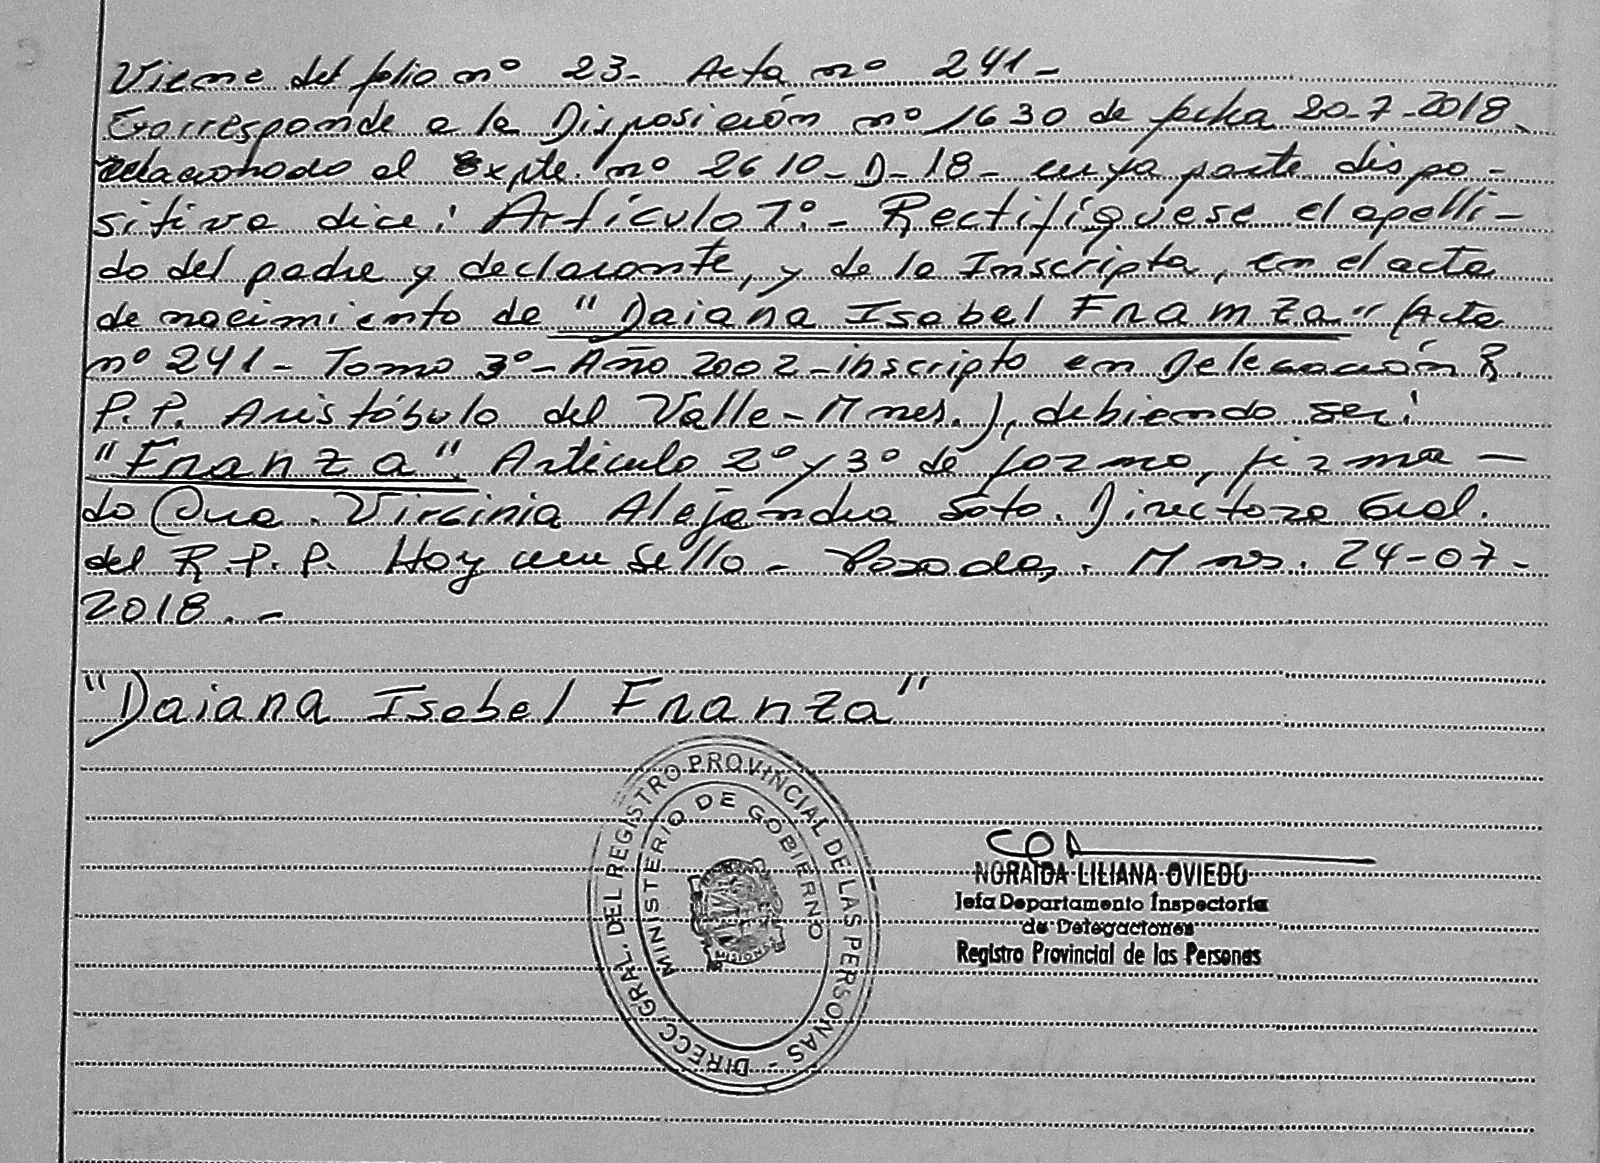 Viene del folio nº 23- Acta nº 241-
Corresponde a la Disposición nº 1630 de fecha 20-7-2018.
relacionado al Expte. nº 2610-D-18- cuya parte dispo-
sitiva dice: Artículo 1º- Rectifíquese el apelli-
do del padre y declarante, y de la Inscripta, en el acta
de nacimiento de "Daiana Isabel Framza" (Acta
nº 241- Tomo 3º- Año 2002- inscripto en Delegación R.
P.P. Aristóbulo del Valle- Mnes.), debiendo ser:
"Franza" Artículo 2º y 3º de forma, firma-
do Virginia Alejandra Soto. Directora Gral.
del R.P.P. Hay un sello- Posadas. Mnes. 24-07-
2018.-
"Daiana Isabel Franza"
DIRECC. GRAL. DEL REGISTRO PROVINCIAL DE LAS PERSONAS -
MINISTERIO DE GOBIERNO
MISIONES
NORAIDA LILIANA OVIEDO
Jefa Departamento Inspectoría
de Delegaciones
Registro Provincial de las Personas